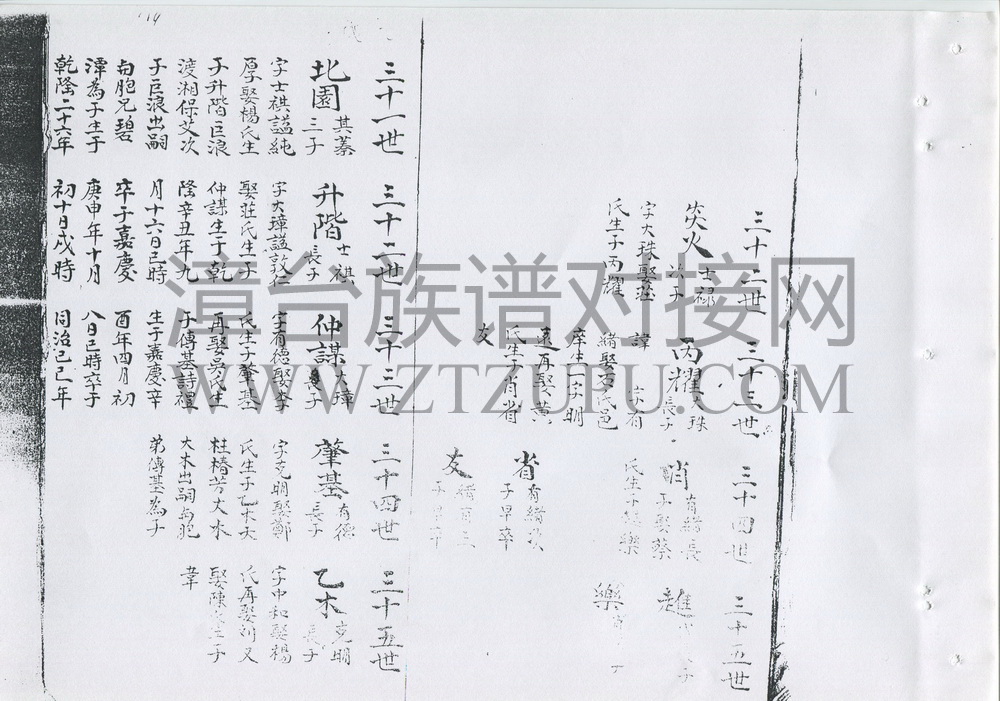 三十二世
炎火 士禄
次子
字大珠娶莊
氏生子丙耀
三十三世
丙耀 大珠
長子
諱 字有
緒娶石氏邑
庠生一字明
遠再娶黃
氏生子肖省
友
三十四世
有緒長
子娶蔡
氏生子
樂
省 有緒次
子早卒
友 有緒三
子早卒
三十五世
樂
三十一世
北園 其蓁
三子
字士祺諡純
厚娶楊氏生
子升階巨浪
渡湘保艾次
子巨浪出嗣
與胞兄碧
潭為子生于
乾隆二十六年
三十二世
升階 士祺
長子
字大璋諡敦仁
娶莊氏生子
仲謀生于乾
隆辛丑年九
月十六日巳時
卒于嘉慶
庚申年十月
初十日戌時
三十三世
仲謀 大璋
長子
字有德娶李
氏生子肇基
再娶吳氏生
子傳基詩禮
生于嘉慶辛
酉年四月初
八日巳時卒于
同治己巳年
三十四世
肇基 有德
長子
字克明娶鄭
氏生子乙木大
枉椿芳大木
大木出嗣與胞
弟傳基為子
三十五世
乙木 克明
長子
字中和娶楊
氏再娶劉又
娶陳氏生子
葦
漳台族谱对接网
WWW.ZTZUPU.COM